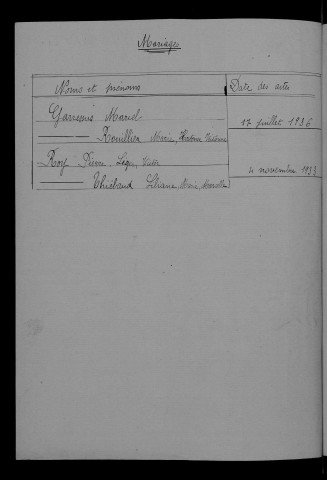 Mariages
Noms et prénoms Date des actes
Garreaus Marcel 17 juillet 1936
Rouillier Marie
Roy Pierre, Léger, Victor 4 novembre 1933
Thiébaud Liliane, Marie, Marcelle